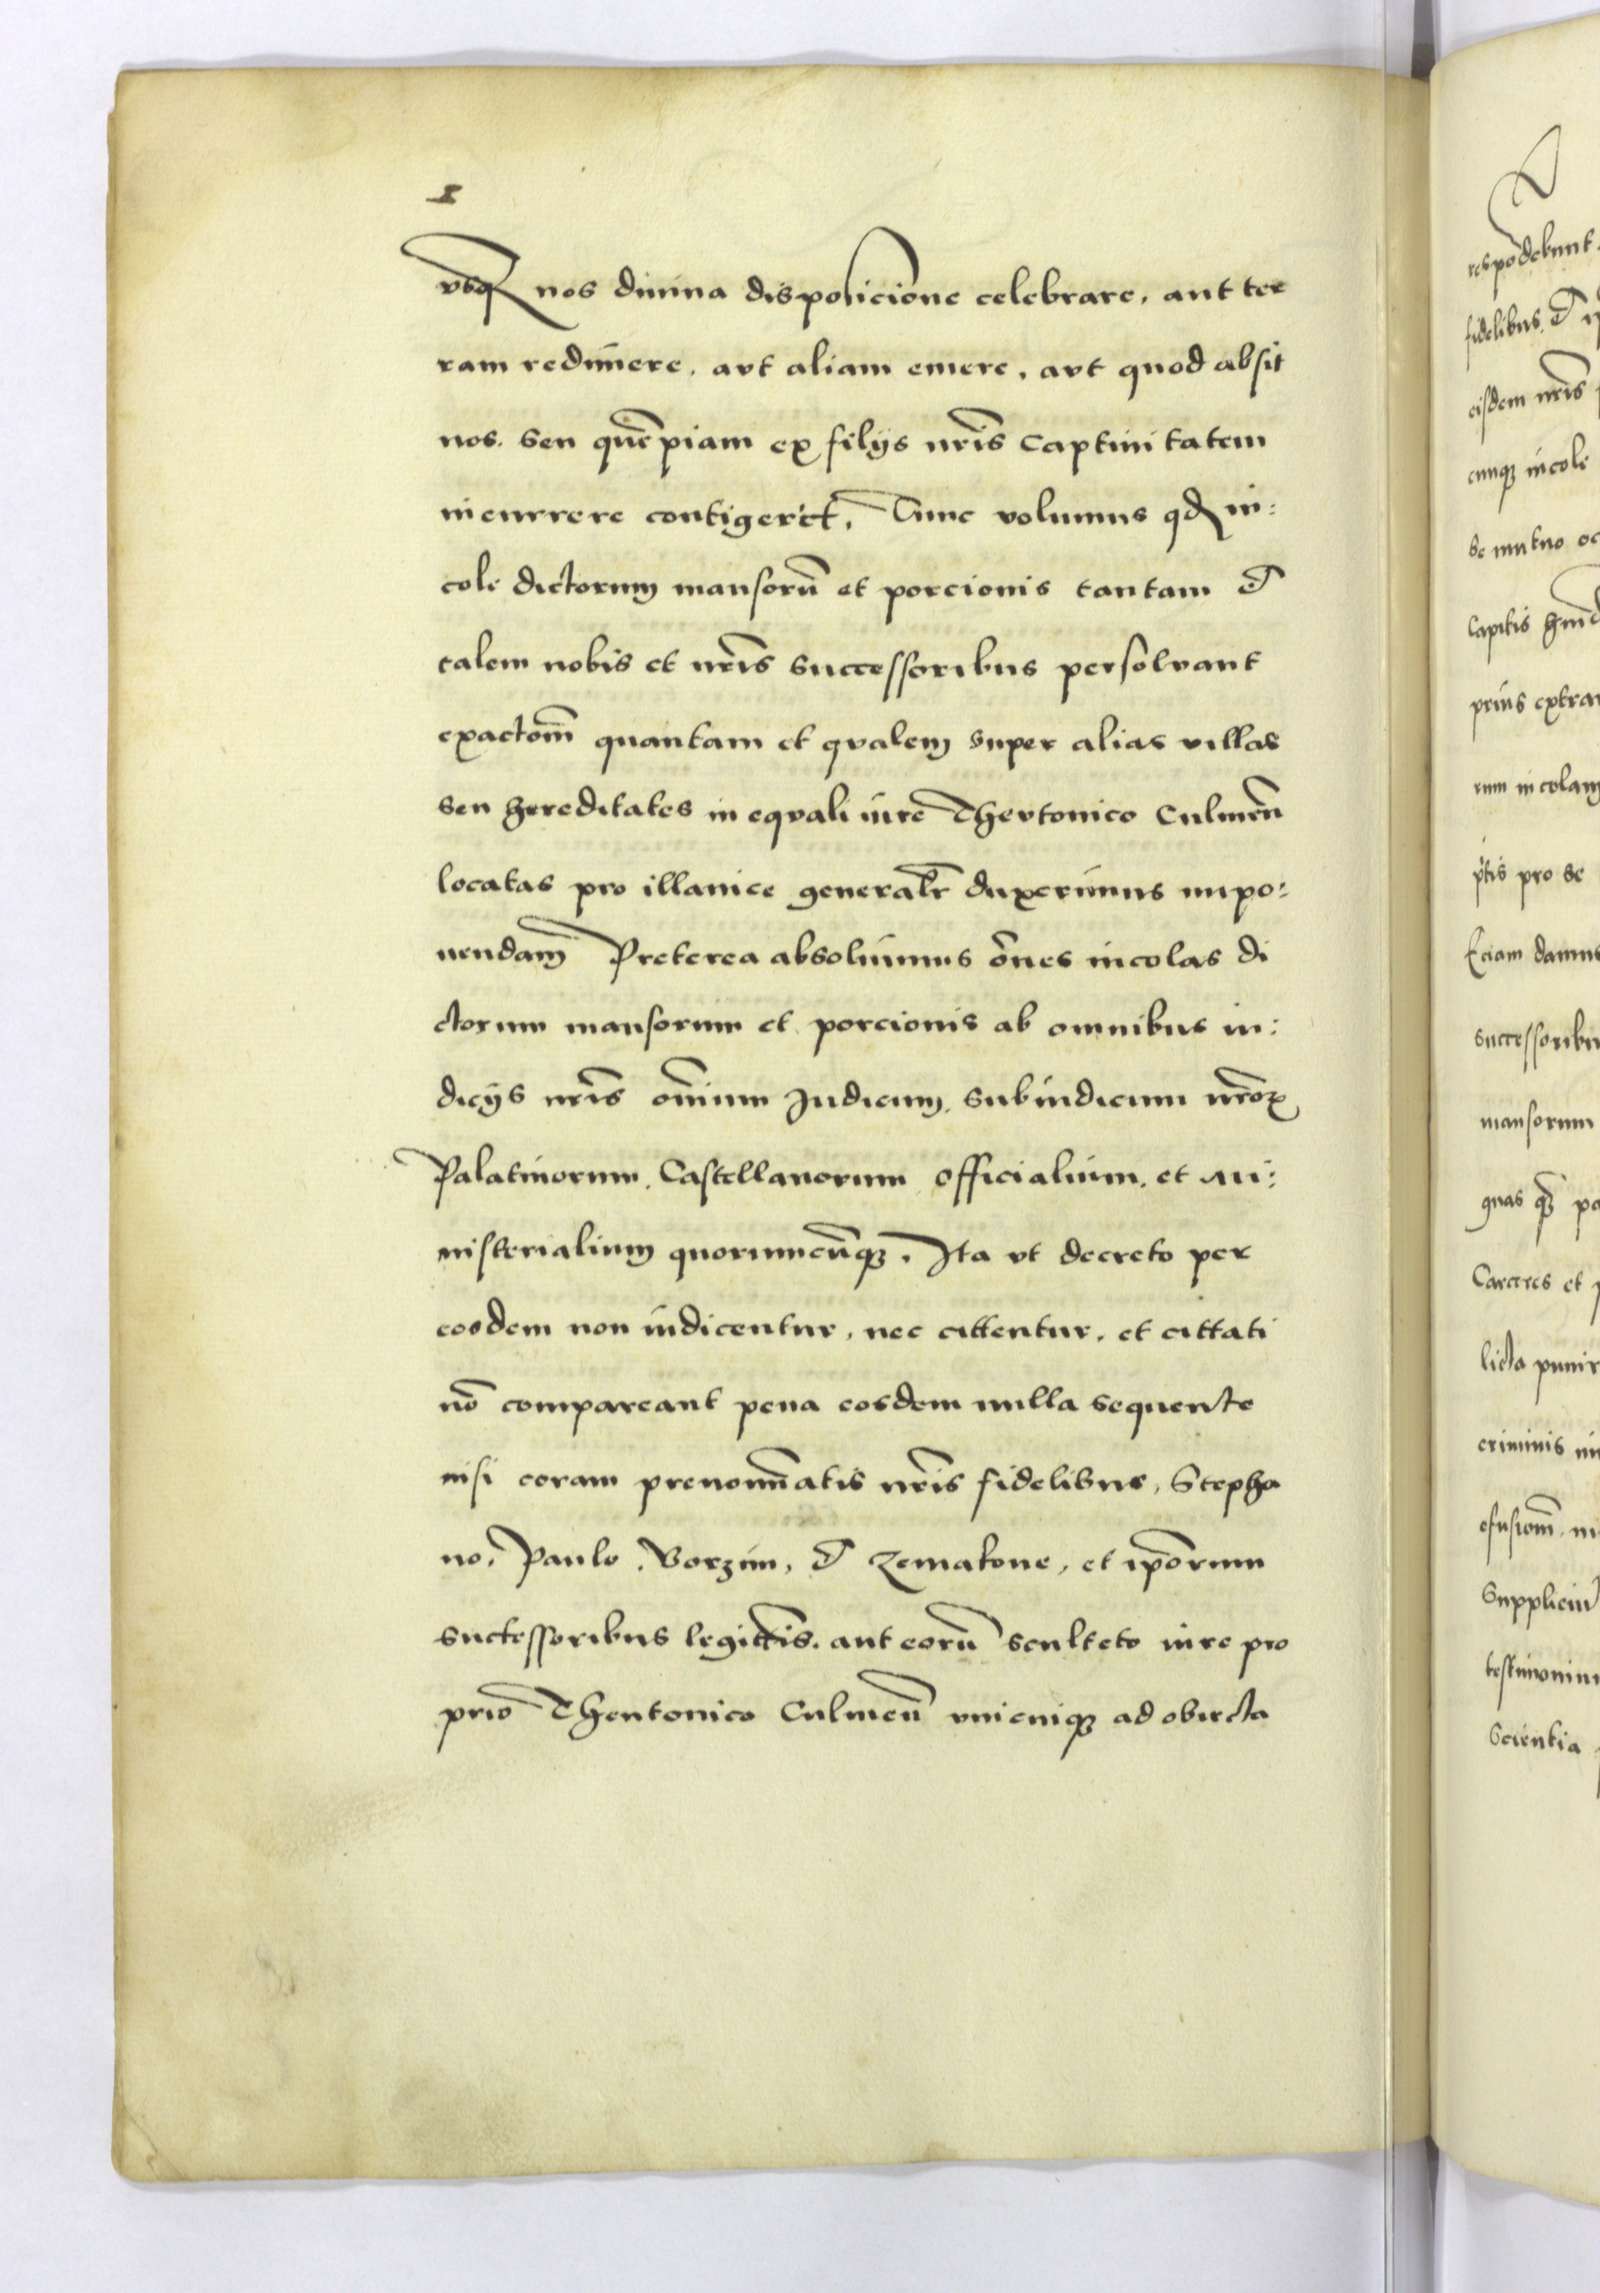 1
vsq nos diuina disposicione celebrare, aut ter
ram redimere, aut aliam emere, aut quod absit
nos. seu quēpiam ex filijs nr̄is Captiuitatem
incurrere contigerit, Tunc volumus qd in:
cole dictorum mansorū et porcionis tantam et
talem nobis et nr̄is successoribus persoluant
exactōm quantam et qualem super alias villas
seu hereditates in equali iure Theutonico Culmeñ
locatas pro illa vice generalr̄ duxerimus impo:
nendam Preterea absoluimus ōnes incolas di
ctorum mansorum et porcionis ab omnibus iu:
dicijs nr̄is om̄ium Judicum, Subiudicum nr̄oꝝ
Palatinorum, Castellanorum officialium, et Mi:
nisterialium quorumcūqꝫ, Ita vt decreto per
eosdem non iudicentur, nec cittentur, et cittati
nō compareant pena eosdem nulla sequente
nisi coram prenoīatis nr̄is fidelibus, Stepha
no, Paulo, Borzim, et Zematone, et ip̄orum
suctessoribus legittīs, aut eorū sculteto iure pro
prio Theutonico Culmeñ vnicuiqꝫ ad obiecta
respōdebunt
fidelibus, et
eisdem nr̄is
cunqꝫ incole
Se mutuo
Capitis
prius
rum incolam
pro se
Eciam damus
successoribu
mansorum
quas
Carceres et
licta punir
criminis
testimonium
Scientia